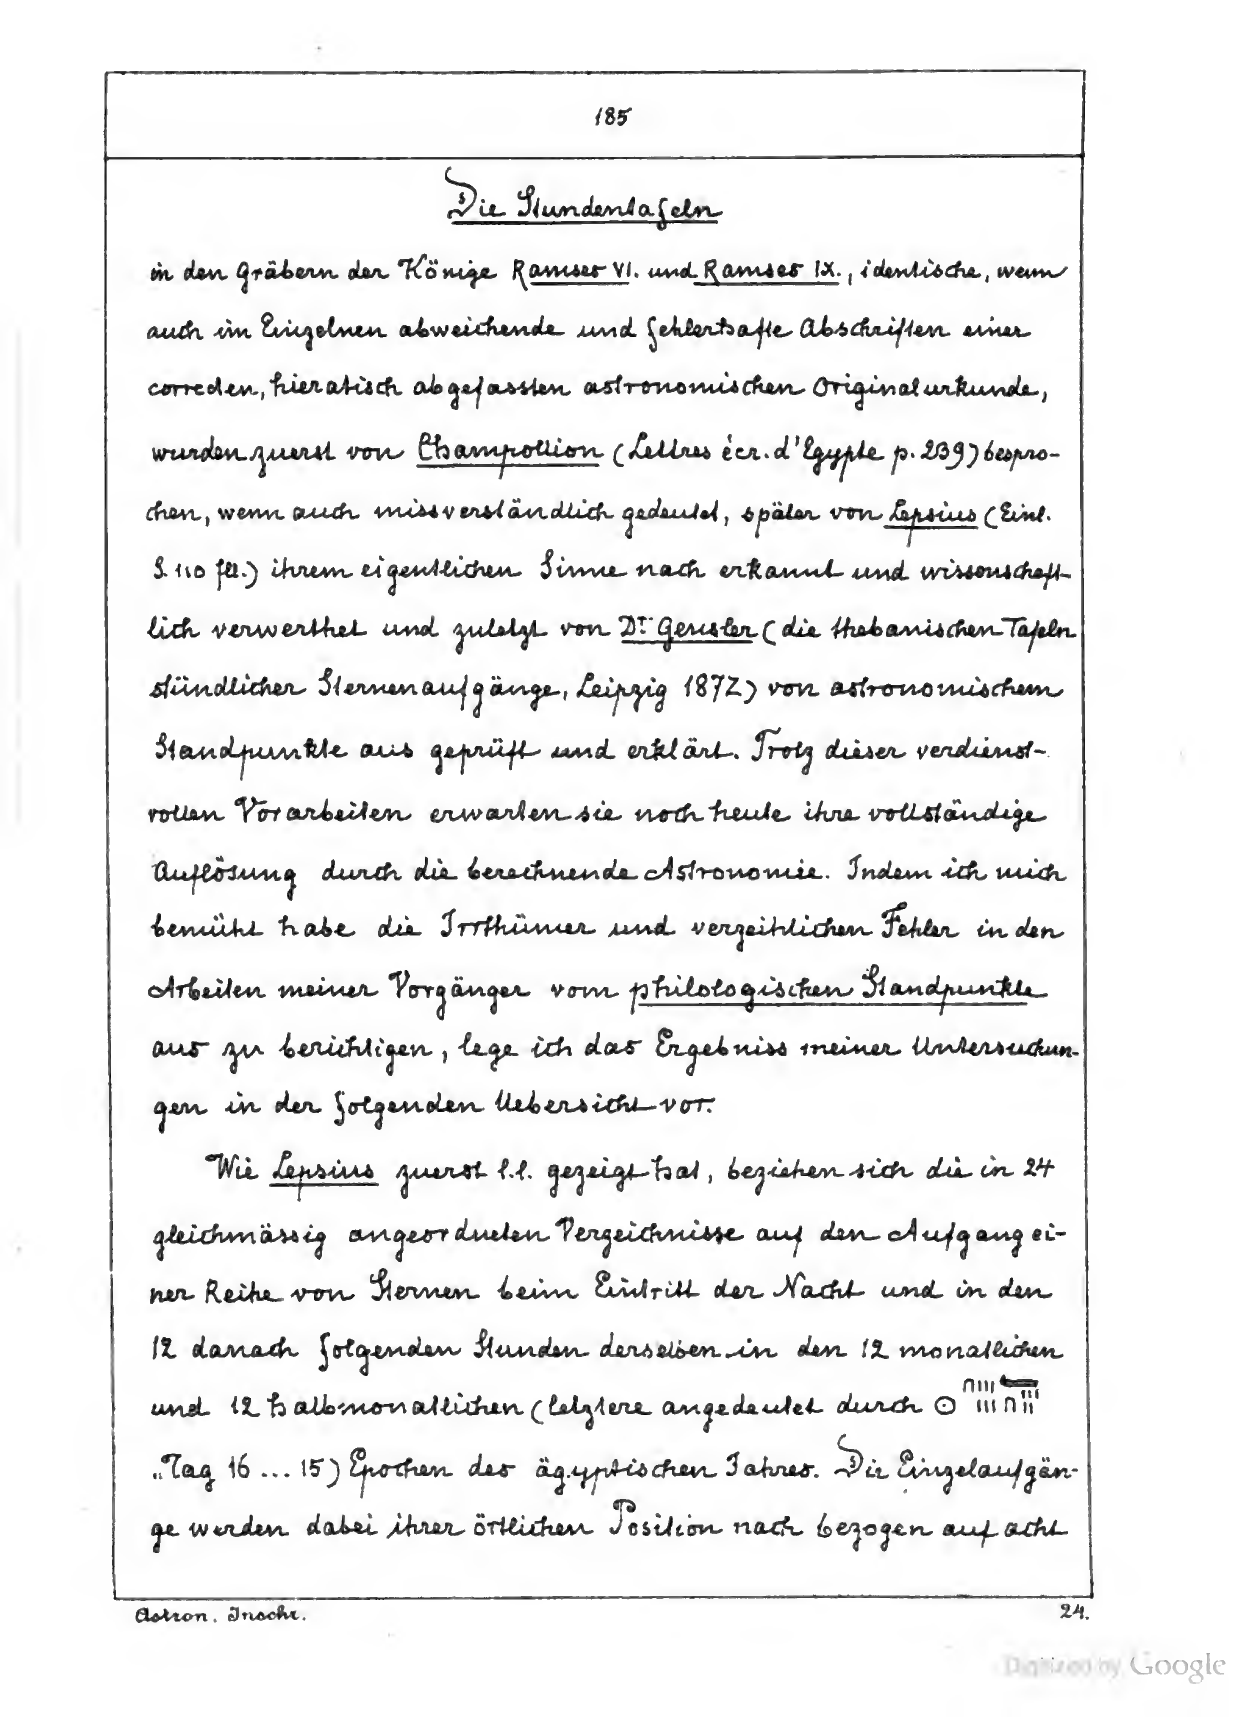 185
Die Stundentafeln
in den Gräbern der Könige Ramses VI. und Ramses IX., identische, wenn
auch im Einzelnen abweichende und fehlerhafte Abschriften einer
correcten, hieratisch abgefassten astronomischen Originalurkunde,
wurden zuerst von Champollion (Lettres écr. d'Egypte p. 239) bespro-
chen, wenn auch missverständlich gedeutet, später von Lepsius (Einl.
S. 110 fll.) ihrem eigentlichen Sinne nach erkannt und wissenschaft-
lich verwerthet und zuletzt von Dr. Gensler (die thebanischen Tafeln
stündlicher Sternenaufgänge, Leipzig 1872) von astronomischem
Standpunkte aus geprüft und erklärt. Trotz dieser verdienst-
vollen Vorarbeiten erwarten sie noch heute ihre vollständige
Auflösung durch die berechnende Astronomie. Indem ich mich
bemüht habe die Irrthümer und verzeihlichen Fehler in den
Arbeiten meiner Vorgänger vom philologischen Standpunkte
aus zu berichtigen, lege ich das Ergebniss meiner Untersuchun-
gen in der folgenden Uebersicht vor.
Wie Lepsius zuerst l.l. gezeigt hat, beziehen sich die in 24
gleichmässig angeordneten Verzeichnisse auf den Aufgang ei-
ner Reihe von Sternen beim Eintritt der Nacht und in den
12 danach folgenden Stunden derselben in den 12 monatlichen
und 12 halbmonatlichen (letztere angedeutet durch
„Tag 16 ... 15) Epochen des ägyptischen Jahres. Die Einzelaufgän-
ge werden dabei ihrer örtlichen Position nach bezogen auf acht
Astron. Inschr.
24.
Digitized by Google